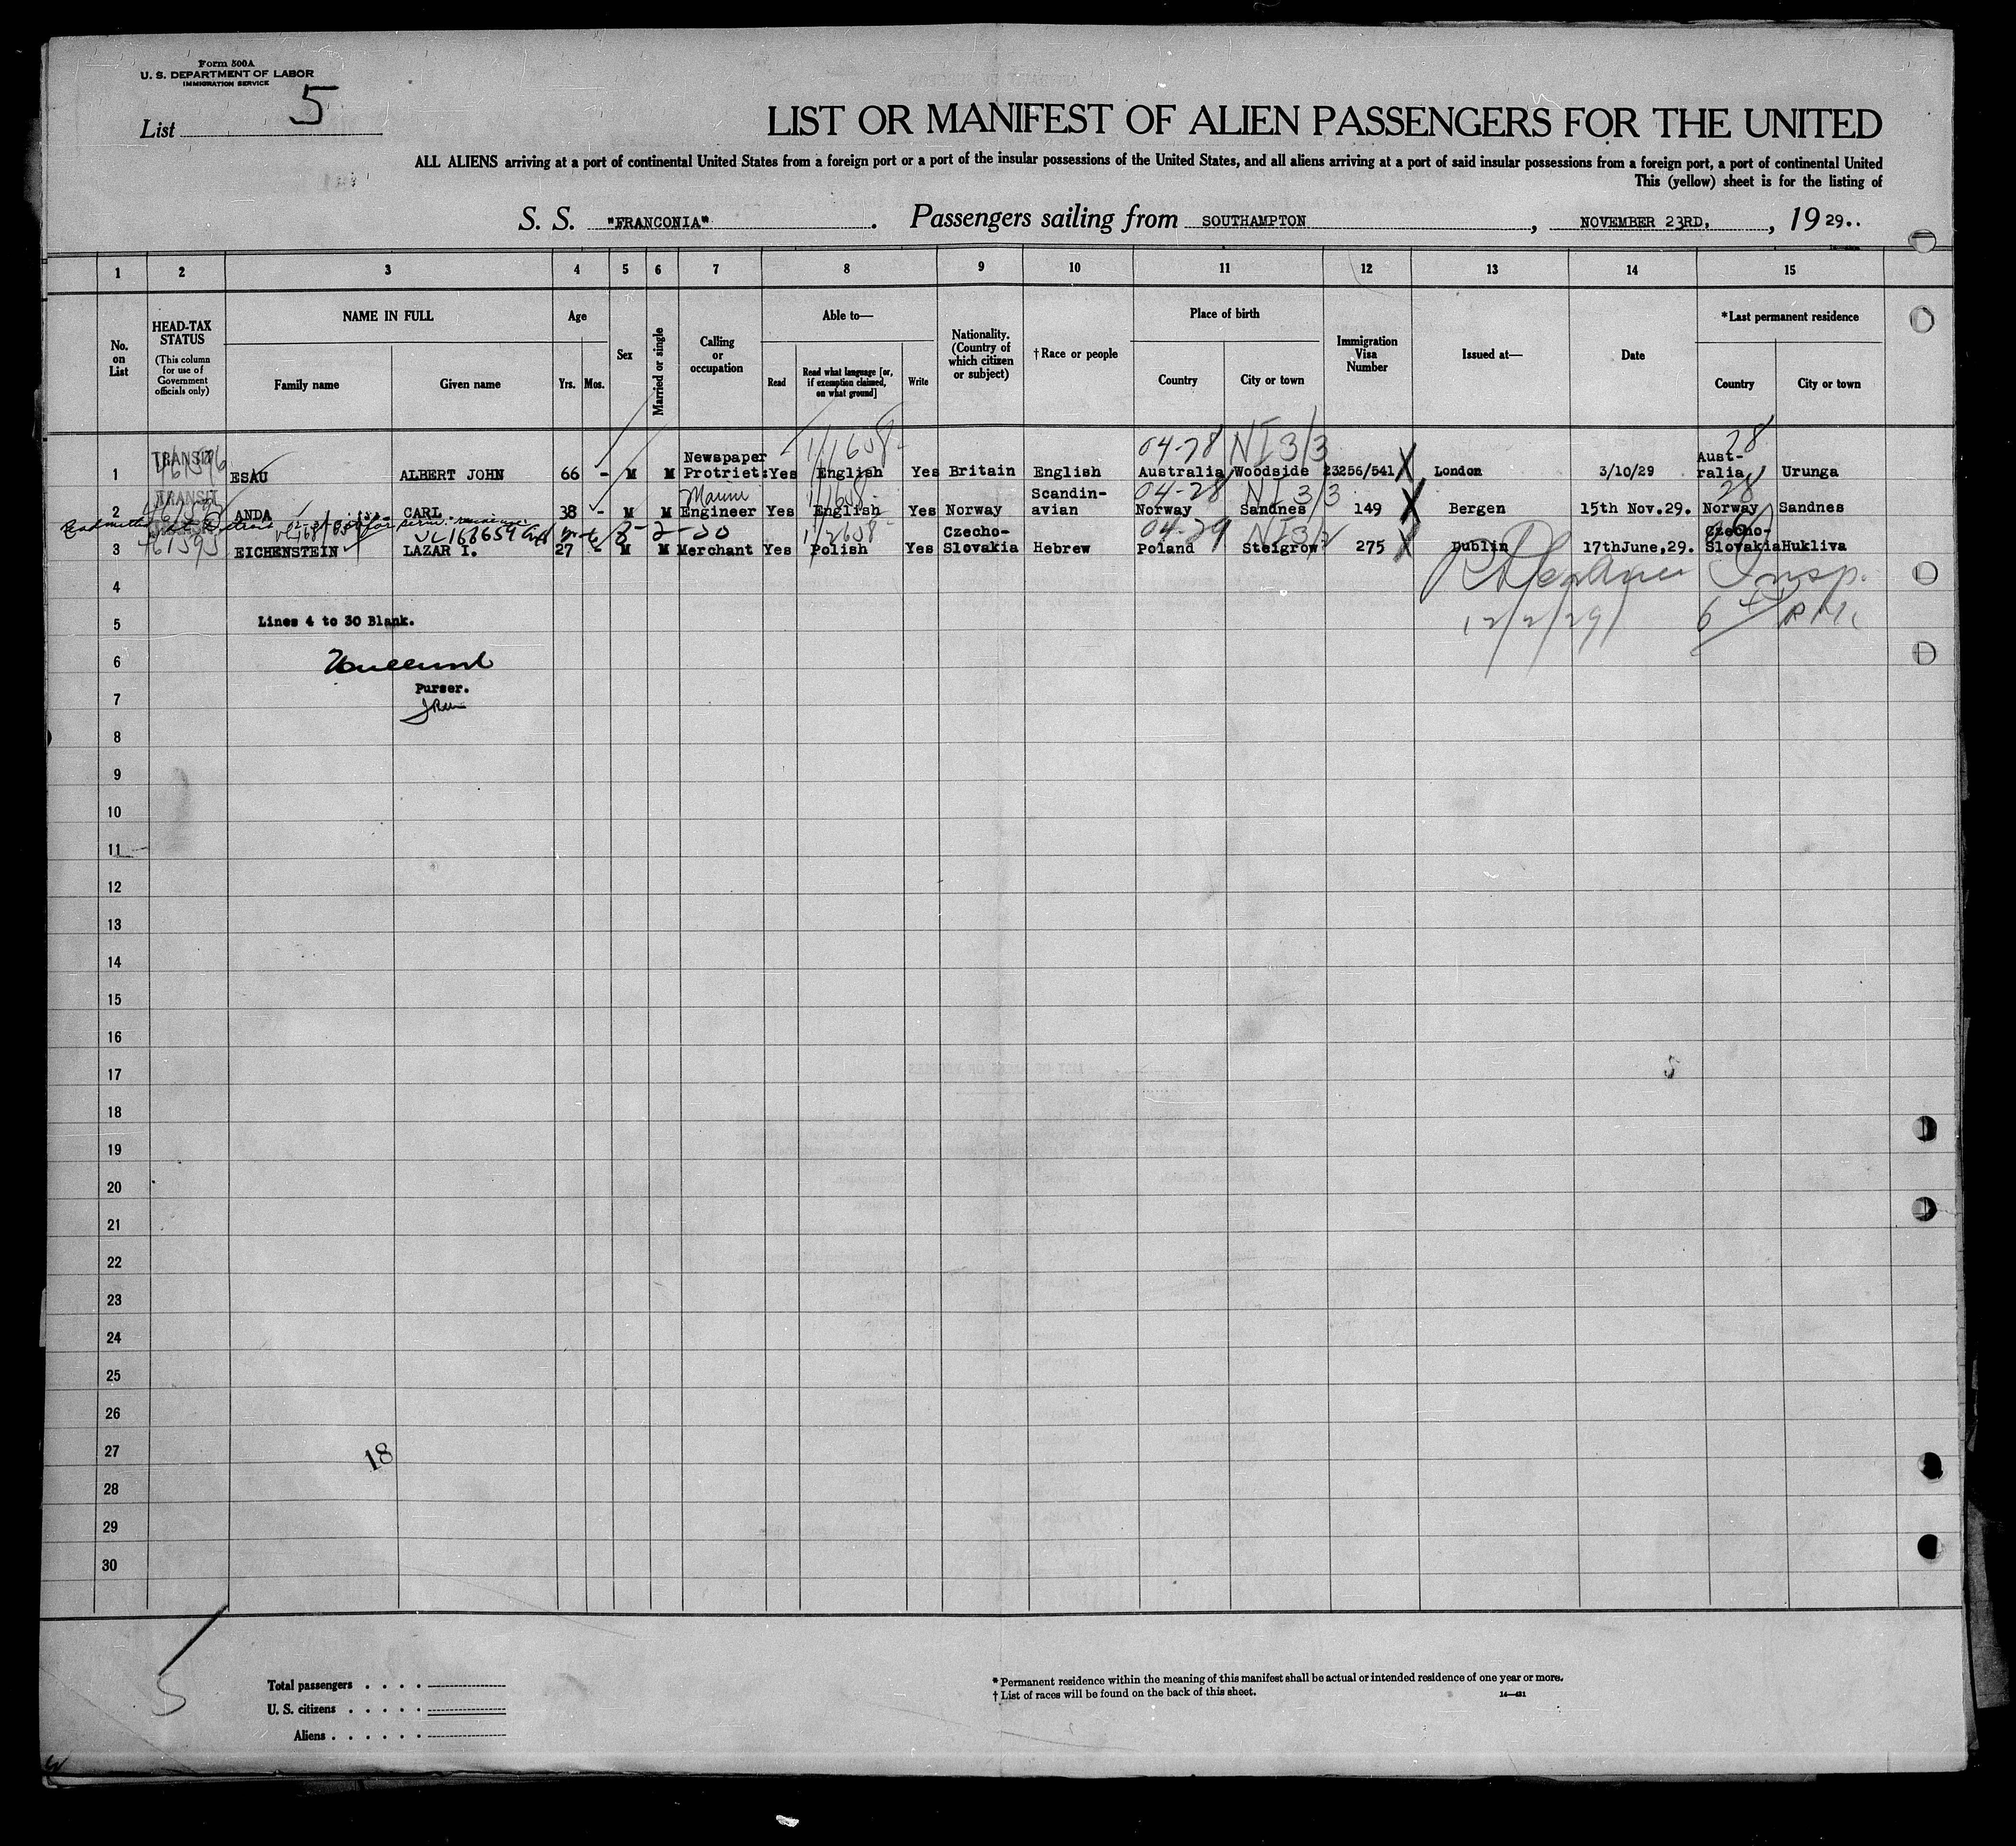 Form 500A
U. S. DEPARTMENT OF LABOR
IMMIGRATION SERVICE
List 5
LIST OR MANIFEST OF ALIEN PASSENGERS FOR THE UNITED
ALL ALIENS arriving at a port of continental United States from a foreign port or a port of the insular possessions of the United States, and all aliens arriving at a port of said insular possessions from a foreign port, a port of continental United
This (yellow) sheet is for the listing of
S. S. "FRANCONIA". Passengers sailing from SOUTHAMPTON, NOVEMBER 23RD, 1929..
1 2 3 4 5 6 7 8 9 10 11 12 13 14 15
No. on List
HEAD-TAX STATUS (This column for use of Government officials only)
NAME IN FULL
Family name Given name
Age
Yrs. Mos.
Sex
Married or single
Calling or occupation
Able to—
Read Read what language [or, if exemption claimed, on what ground] Write
Nationality. (Country of which citizen or subject)
†Race or people
Place of birth
Country City or town
Immigration Visa Number
Issued at—
Date
*Last permanent residence
Country City or town
04-28 NI 3/3 28
1 TRANSIT ESAU ALBERT JOHN 66 - M M Newspaper Protriet: Yes English Yes Britain English Australia Woodside 23256/541 X London 3/10/29 Aust-ralia Urunga
04-28 NI 3/3 28
2 TRANSIT ANDA CARL. 38 - M M Marine Engineer Yes English Yes Norway Scandin-avian Norway Sandnes 149 X Bergen 15th Nov.29. Norway Sandnes
8-2-30
04-29 NI 3/
3 EICHENSTEIN LAZAR I. 27 - M M Merchant Yes Polish Yes Czecho-Slovakia Hebrew Poland Steigrow 275 X Dublin 17thJune,29. Czecho-Slovakia Hukliva
4
Insp.
5 Lines 4 to 30 Blank.
12/2/29
6
Purser.
7
8
9
10
11
12
13
14
15
16
17
18
19
20
21
22
23
24
25
26
27
18
28
29
30
5
Total passengers . . . .
U. S. citizens . . . . .
Aliens . . . . . .
* Permanent residence within the meaning of this manifest shall be actual or intended residence of one year or more.
† List of races will be found on the back of this sheet.
14—431